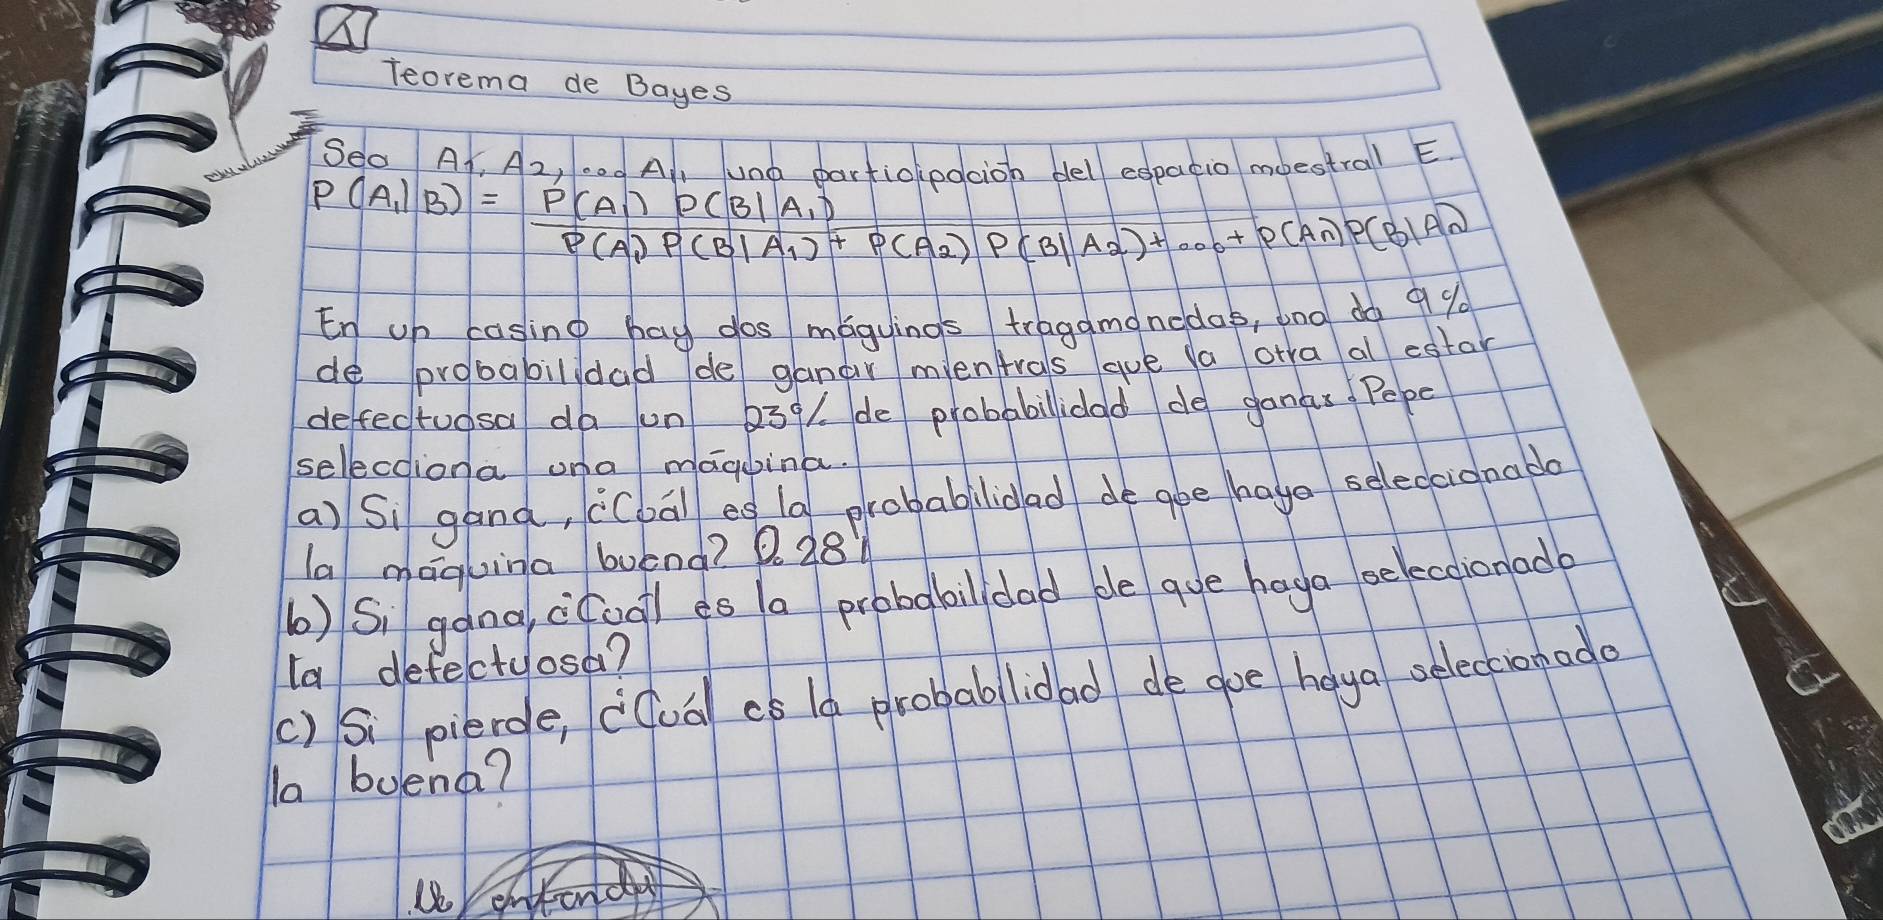 Teorema de Bayes
Sea A1, A2, ... An una participación del espacio muestral E.
P(A1|B) = P(A1) P(B|A1)
P(A1) P(B|A1) + P(A2) P(B|A2) + ... + P(An) P(B|An)
En un casino hay dos máquinas tragamonedas, una da 9%
de probabilidad de ganar mientras que la otra al estar
defectuosa da un 23% de probabilidad de ganar. Pepe
selecciona una máquina.
a) Si gana, ¿Cuál es la probabilidad de que haya seleccionado
la máquina buena? 0.281
b) Si gana, ¿Cuál es la probabilidad de que haya seleccionado
la defectuosa?
c) Si pierde, ¿Cuál es la probabilidad de que haya seleccionado
la buena?